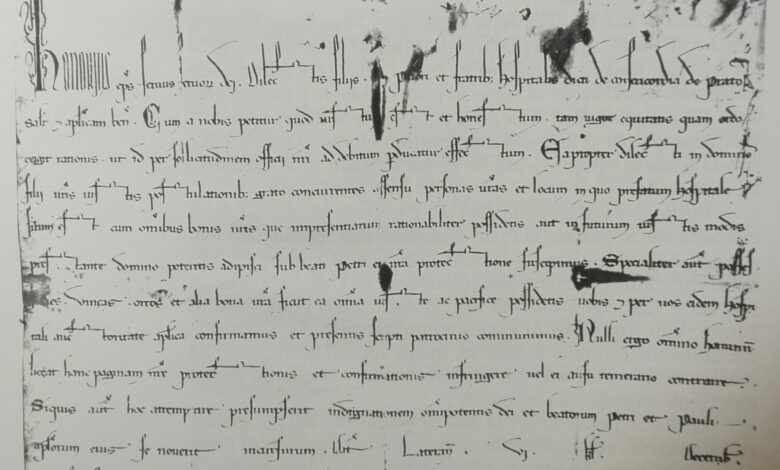 Honorius eps seruus seruorꝫ dei. Dilectis filiis. Priori et fratribꝫ hospitalis dicti de misericordia de Prato
salt ⁊ aplicam ben. Cum a nobis petitur quod iustum est et honestum. tam uigor equitatis quam ordo
exigit rationis. ut id per sollicitudinem officii nri ad debitum pducatur effectum. Eapropter dilecti in domino
filii uris iustis postulationibꝫ grato concurrentes assensu personas uras et locum in quo prefatum hospitale
situm est cum omibus bonis uris que impresentiarum rationabiliter possidetis aut in futurum iustis modis
prestante domino poteritis adipisci sub beati Petri et nra protectione suscipimus. Specialiter aut posses
ones domos ortos et alia bona ura sicut ea omia iuste ac pacifice possidetis uobis ⁊ per uos eidem hospi
tali auctoritate aplica confirmamus et presentis scripti patrocinio communimus. Nulli ergo omino hominum
liceat hanc paginam nre protectionis et confirmationis infringere uel ei ausu temerario contraire.
Siquis aut hoc attemptare presumpserit indignationem omipotentis dei et beatorum Petri et Pauli
aplorum eius se nouerit incursurum. Lateran VI kl Decembr